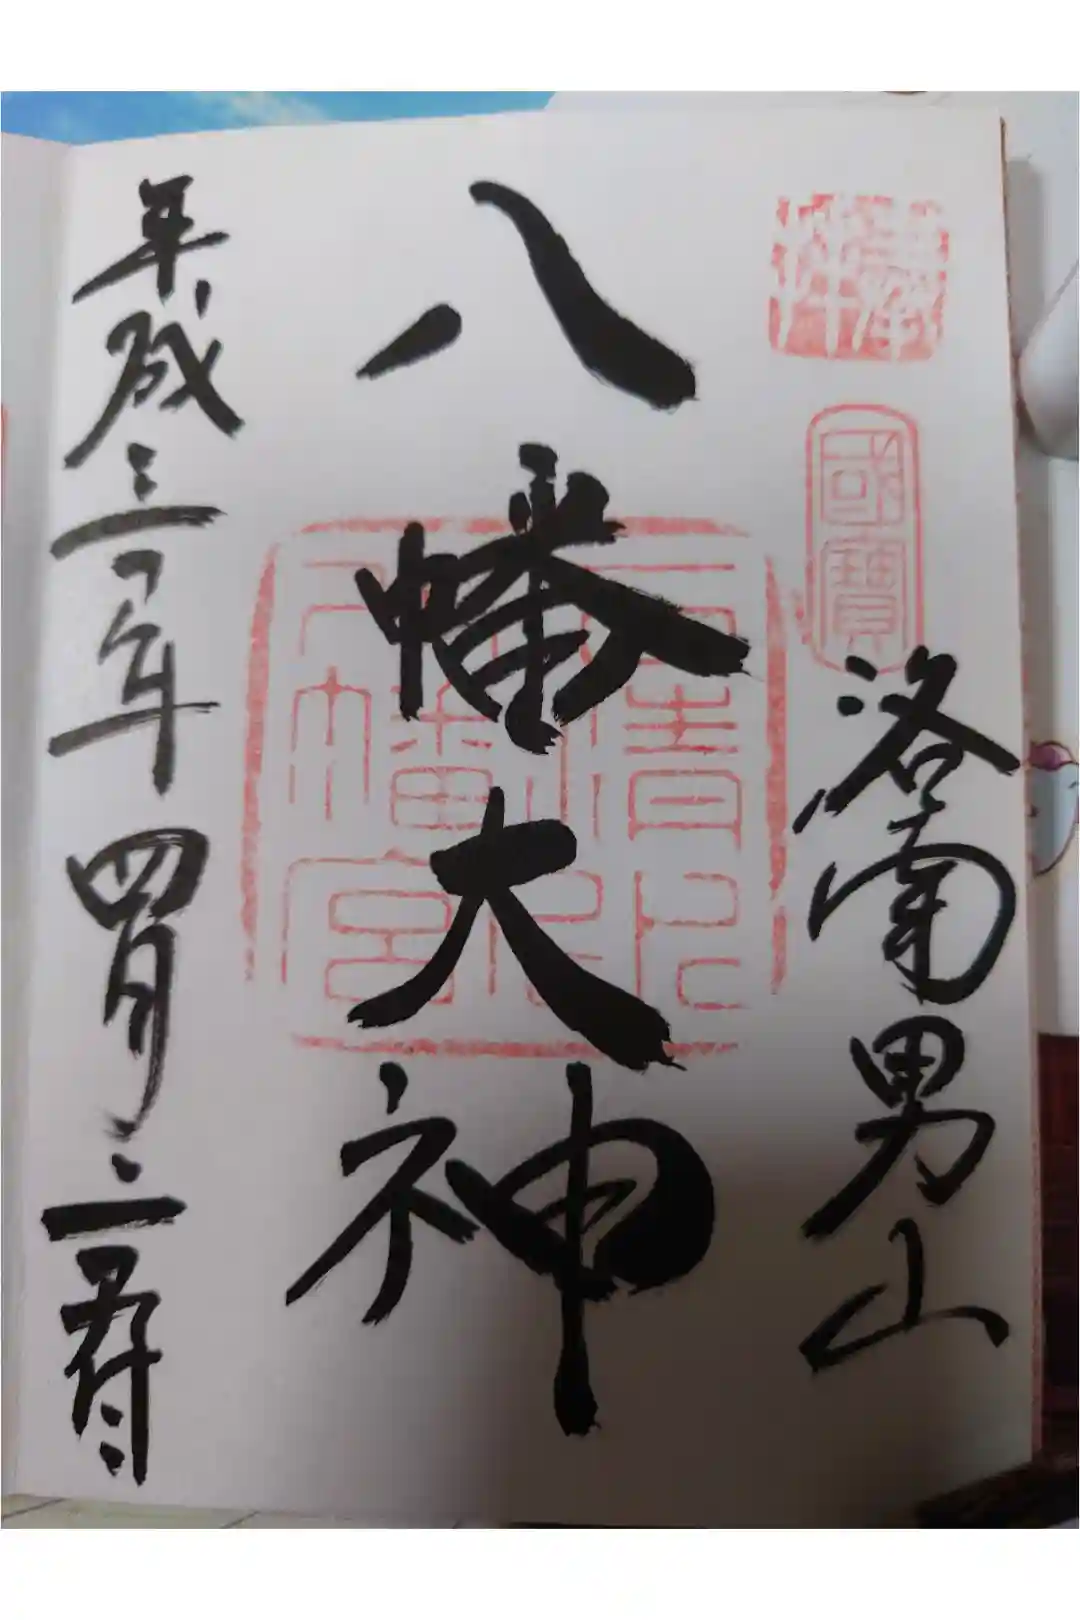 奉拝
國寶
洛南男山
八幡大神
石清水
八幡宮
平成三 年四月二